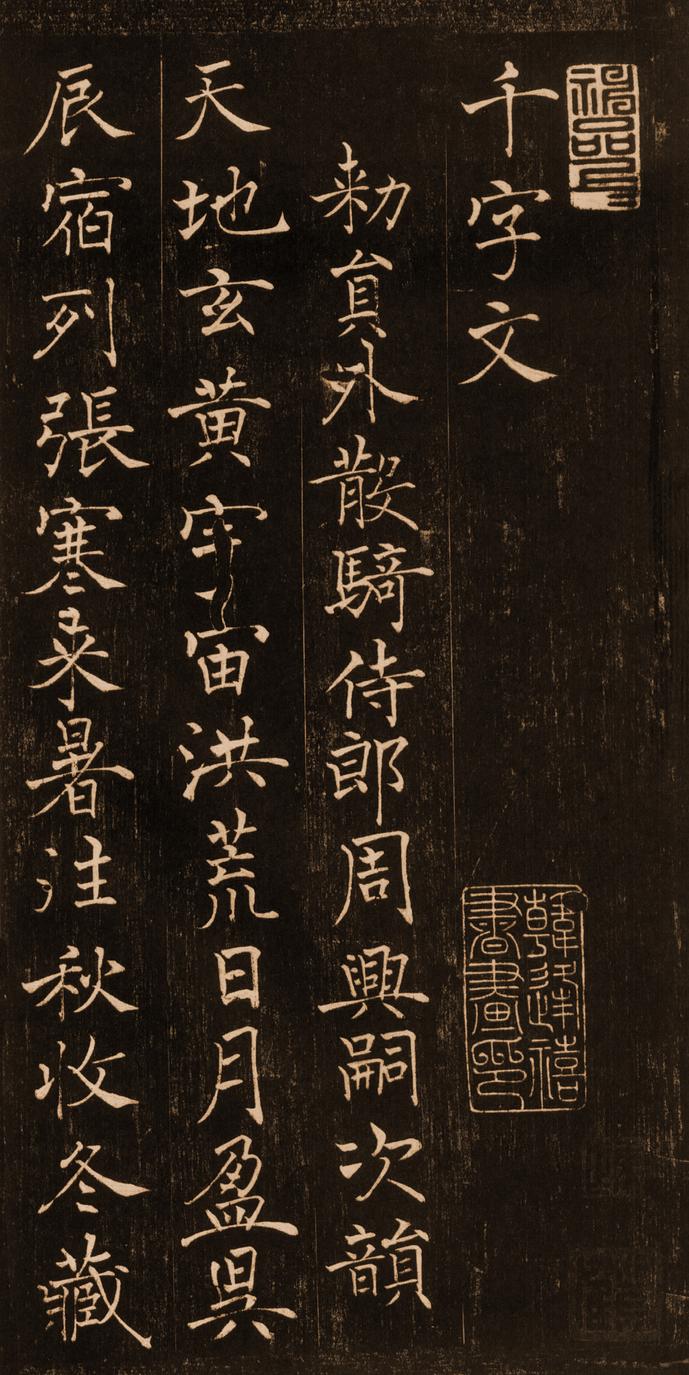 千字文
韓逢禧書畫印
勑員外散騎侍郎周興嗣次韻
天地玄黄宇宙洪荒日月盈昃
辰宿列張寒来暑往秋收冬藏